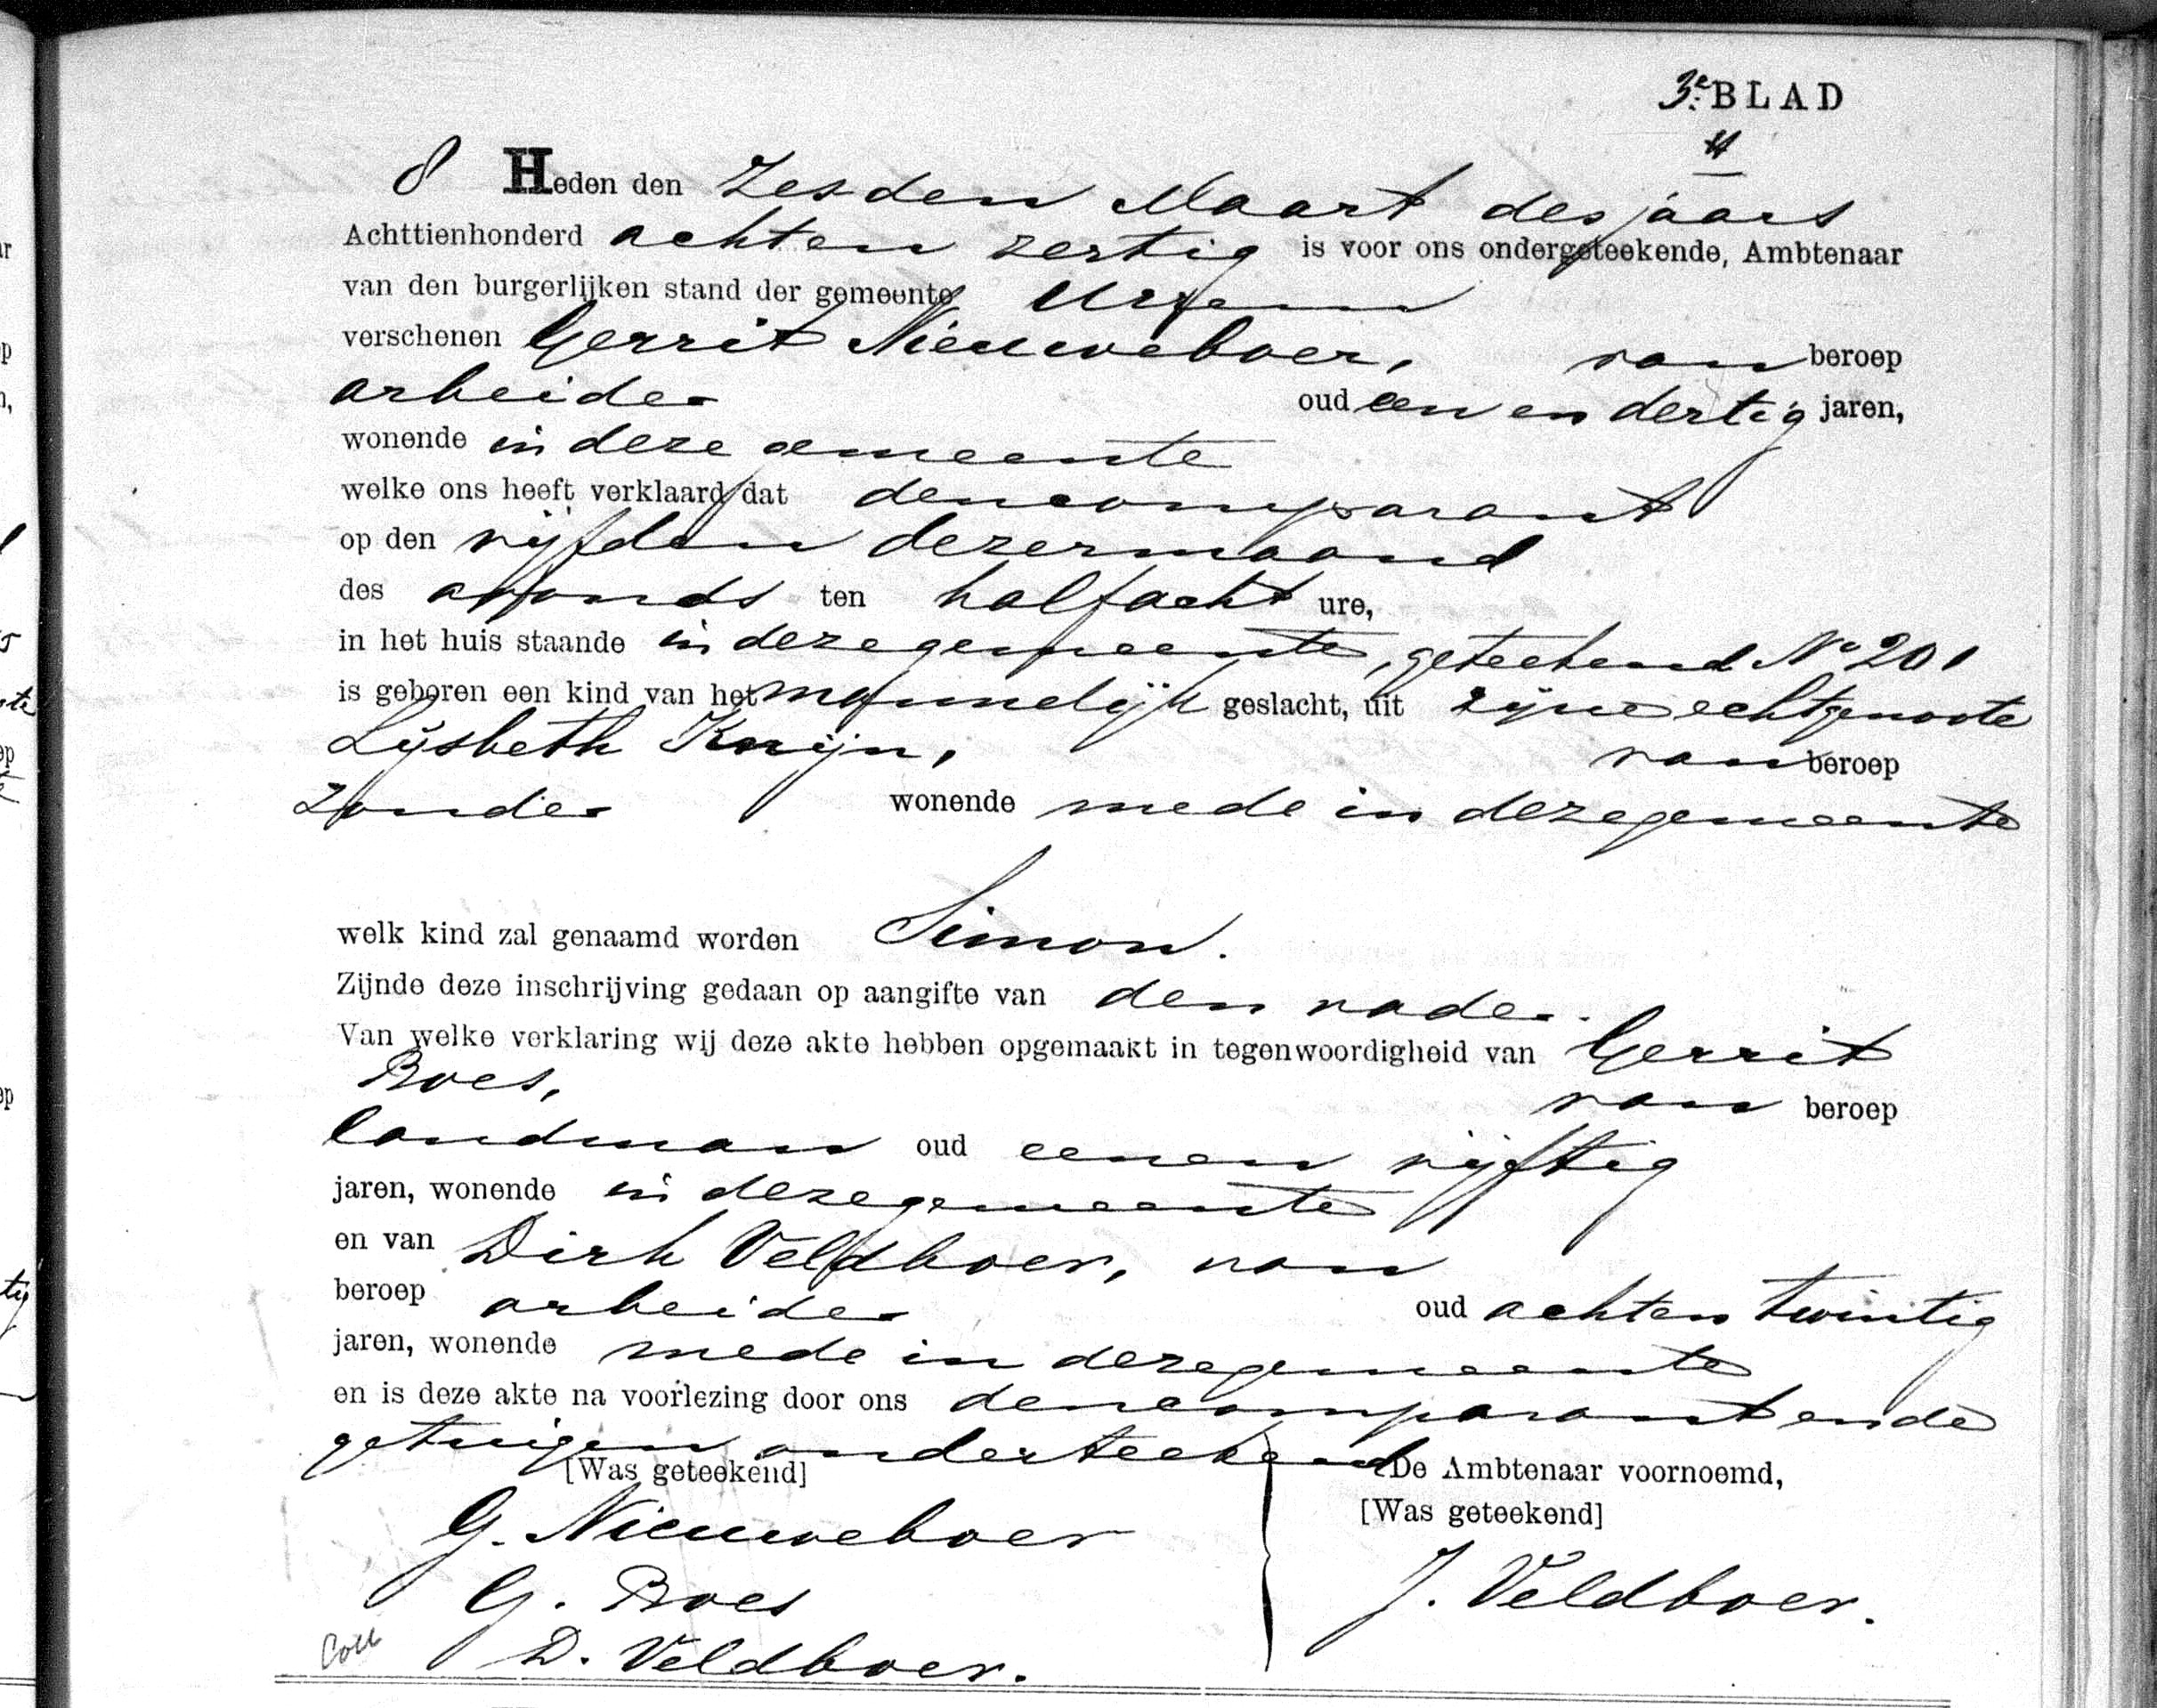 3e. BLAD
8 Heden den Zesden Maart des jaars
Achttienhonderd achten zestig is voor ons ondergeteekende, Ambtenaar
van den burgerlijken stand der gemeente Ursem
verschenen Gerrit Nieuweboer, van beroep
arbeider oud een en dertig jaren,
wonende in deze gemeente
welke ons heeft verklaard dat den comparant
op den vijfden dezer maand
des avonds ten half acht ure,
in het huis staande in deze gemeente, geteekend No 201
is geboren een kind van het mannelijk geslacht, uit zijne echtgenoote
Lijsbeth Knijn, van beroep
zonder wonende mede in deze gemeente
welk kind zal genaamd worden Simon.
Zijnde deze inschrijving gedaan op aangifte van den vader.
Van welke verklaring wij deze akte hebben opgemaakt in tegenwoordigheid van Gerrit
Boes, van beroep
landman oud eenen vijftig
jaren, wonende in deze gemeente
en van Dirk Veldboer, van
beroep arbeider oud achten twintig
jaren, wonende mede in deze gemeente
en is deze akte na voorlezing door ons den comparant en de
getuigen onderteekend
[Was geteekend] De Ambtenaar voornoemd,
[Was geteekend]
G. Nieuweboer
G. Boes J. Veldboer.
Coll D. Veldboer.